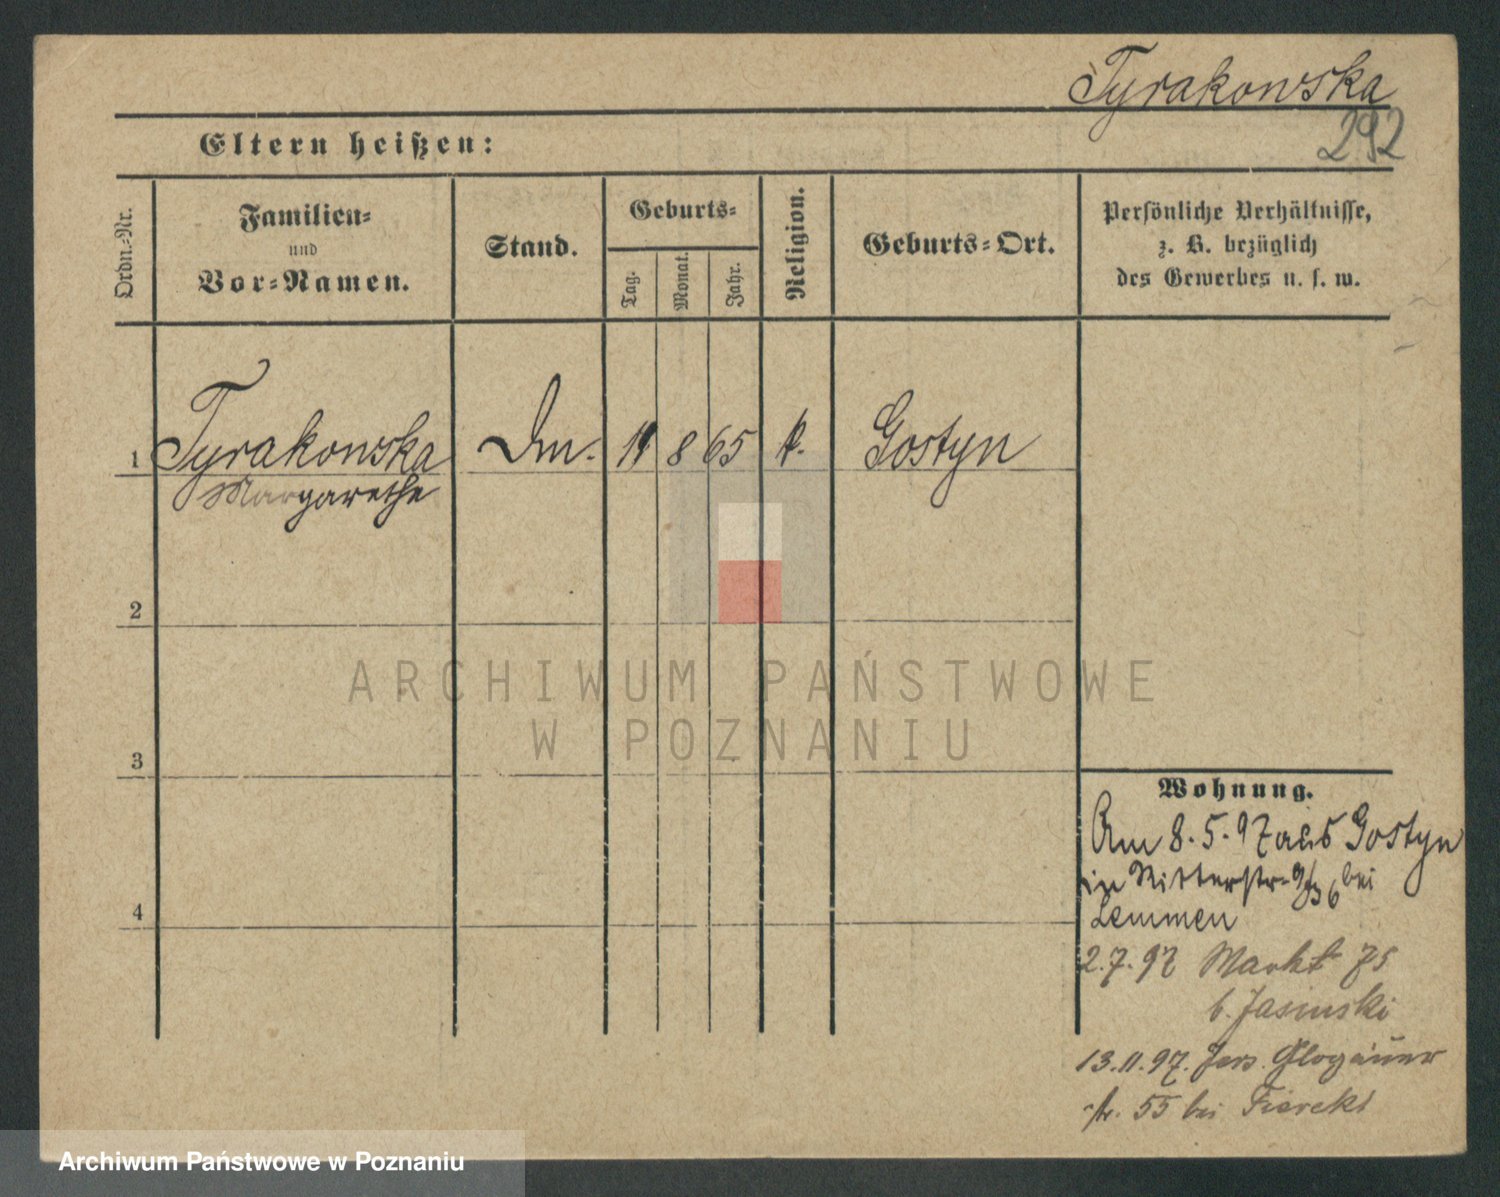 Tyrakowska
292
Eltern heißen:
Ordn.-Nr.
Familien-
und
Vor-Namen.
Stand.
Geburts-
Tag.
Monat.
Jahr.
Religion.
Geburts-Ort.
Persönliche Verhältnisse,
z. B. bezüglich
des Gewerbes u. s. w.
1 Tyrakowska 8 65 k. Gostyn
Margarethe
2
3
4
ARCHIWUM PAŃSTWOWE
W POZNANIU
Wohnung.
Am 8.5.97 aus Gostyn
in Ritterstr. bei
Lemmen
2.7.97 Markt 75
b. Jasinski
13.11.97. Jers. Glogauer
str. 55 bei
Archiwum Państwowe w Poznaniu